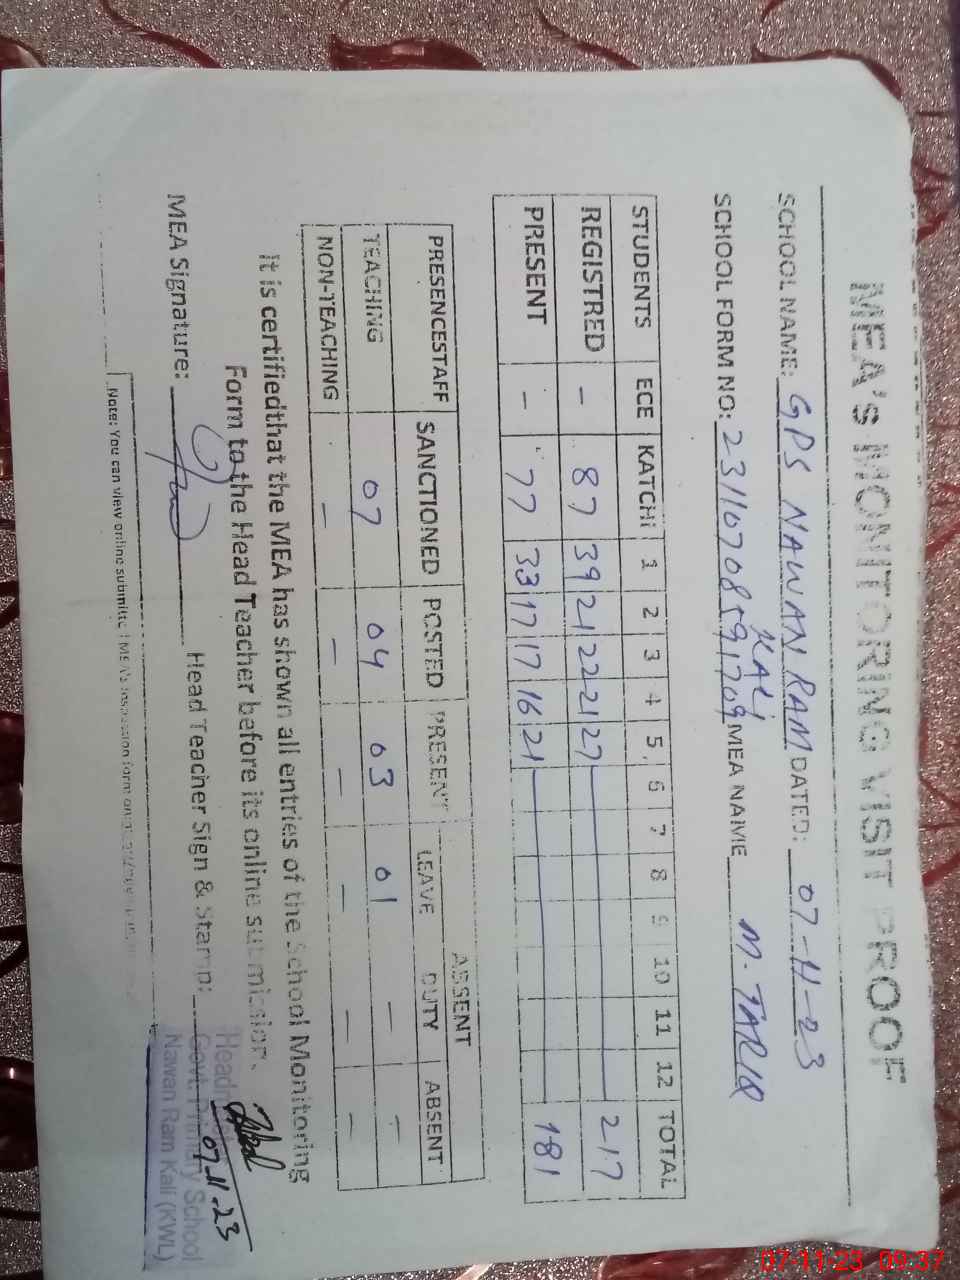 MEA's MONITORING VISIT PROOF
SCHOOL NAME: GPS NAWAN RAM KALI DATED: 07-11-23
SCHOOL FORM NO: 23110708591709 MEA NAME M. TARIQ
STUDENTS ECE KATCHI 1 2 3 4 5 6 7 8 9 10 11 12 TOTAL
REGISTRED - 87 39 21 22 21 27 217
PRESENT - 77 33 17 17 16 21 181
ABSENT
PRESENCESTAFF SANCTIONED POSTED PRESENT LEAVE DUTY ABSENT
TEACHING 07 04 03 01 - -
NON-TEACHING - - - - - -
It is certifiedthat the MEA has shown all entries of the School Monitoring
Form to the Head Teacher before its online submission.
MEA Signature: Head Teacher Sign & Stamp:
Head
Govt. Primary School
Nawan Ram Kali (KWL)
07-11-23
Note: You can view online submitted MEA's inspection form on
07-11-23 09:37